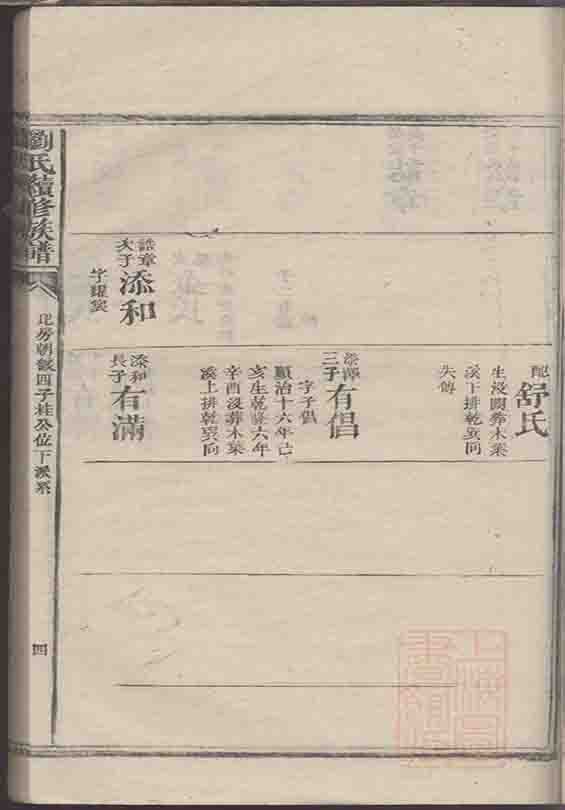 配
舒氏
生沒闕葬木葉
溪下排乾巽向
失傳
添澤
三子
有倡
字子倡
順治十六年己
亥生乾隆六年
辛酉沒葬木葉
溪上排乾巽向
誥章
次子
添和
字耀裳
添和
長子
有滿
劉氏續修族譜
房朝 四子桂公位下 系
四
上海圖
書館藏